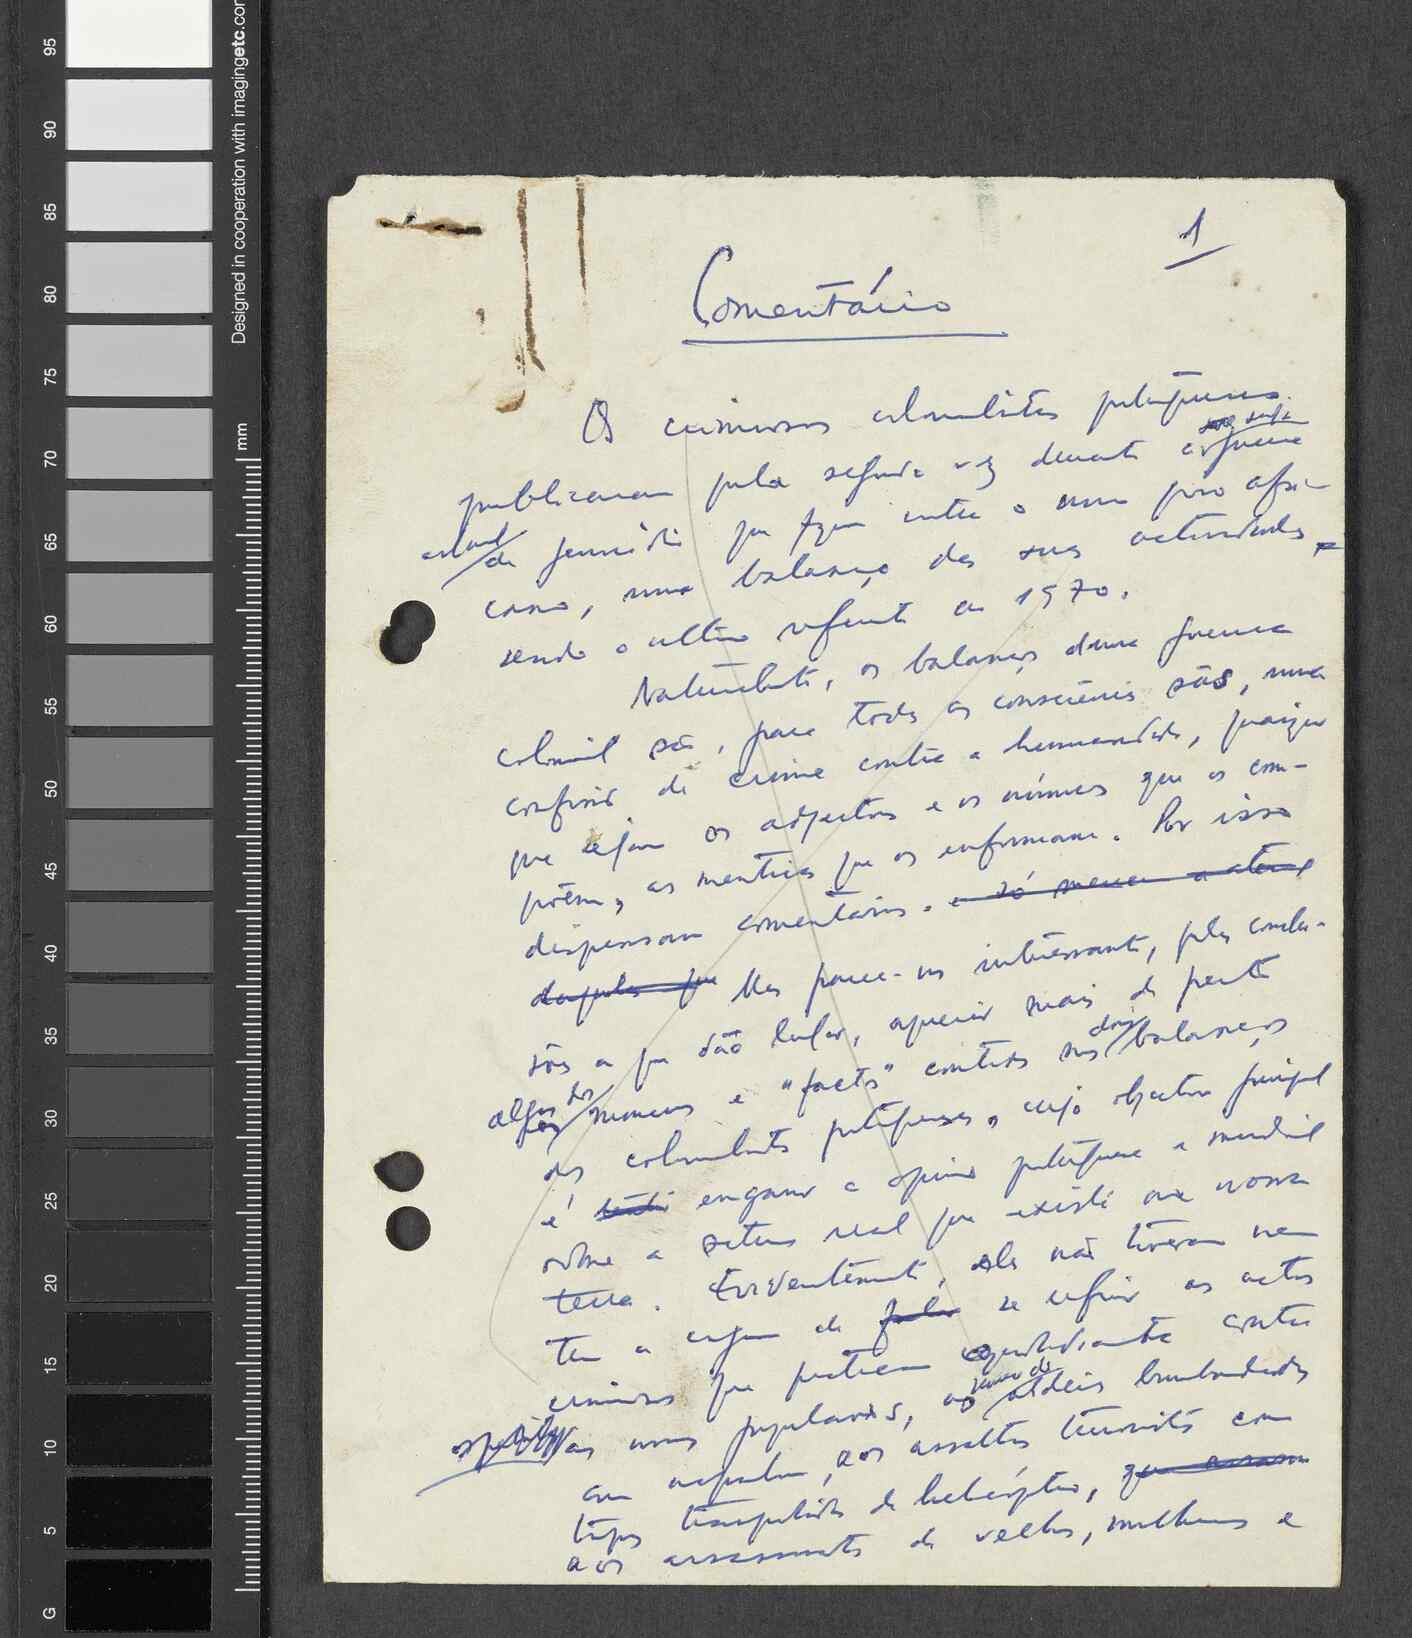 Designed in cooperation with imagingetc.com
mm
95
90
85
80
75
70
65
60
55
50
45
40
35
30
25
20
15
10
5
G
1
Comentário
Os criminosos colonialistas portugueses
publicaram pela segunda vez durante a guerra
colonial
de genocídio que fazem contra o nosso povo afri-
cano, um balanço das suas actividades,
sendo o último referente a 1970.
Naturalmente, os balanços duma guerra
colonial são, para todas as consciências sãs, uma
confissão de crime contra a humanidade, quaisquer
que sejam os adjectivos e os números que os com-
põem, as mentiras que os enformam. Por isso
dispensam comentários. e só merecem
daqueles que Mas parece-nos interessante, pelas conclu-
sões a que dão lugar, apreciar mais de perto
alguns dos números e "factos" contidos nos dois balanços
dos colonialistas portugueses, cujo objectivo principal
é enganar a opinião portuguesa e mundial
sobre a situação real que existe na nossa
terra. Evidentemente, eles não tiveram nem
têm a coragem de falar se referir aos actos
criminosos que praticam quotidianamente contra
as nossas populações, às aldeias bombardeadas
com napalm, aos assaltos terroristas com
tropas transportadas de helicóptero, que
aos assassinatos de velhos, mulheres e